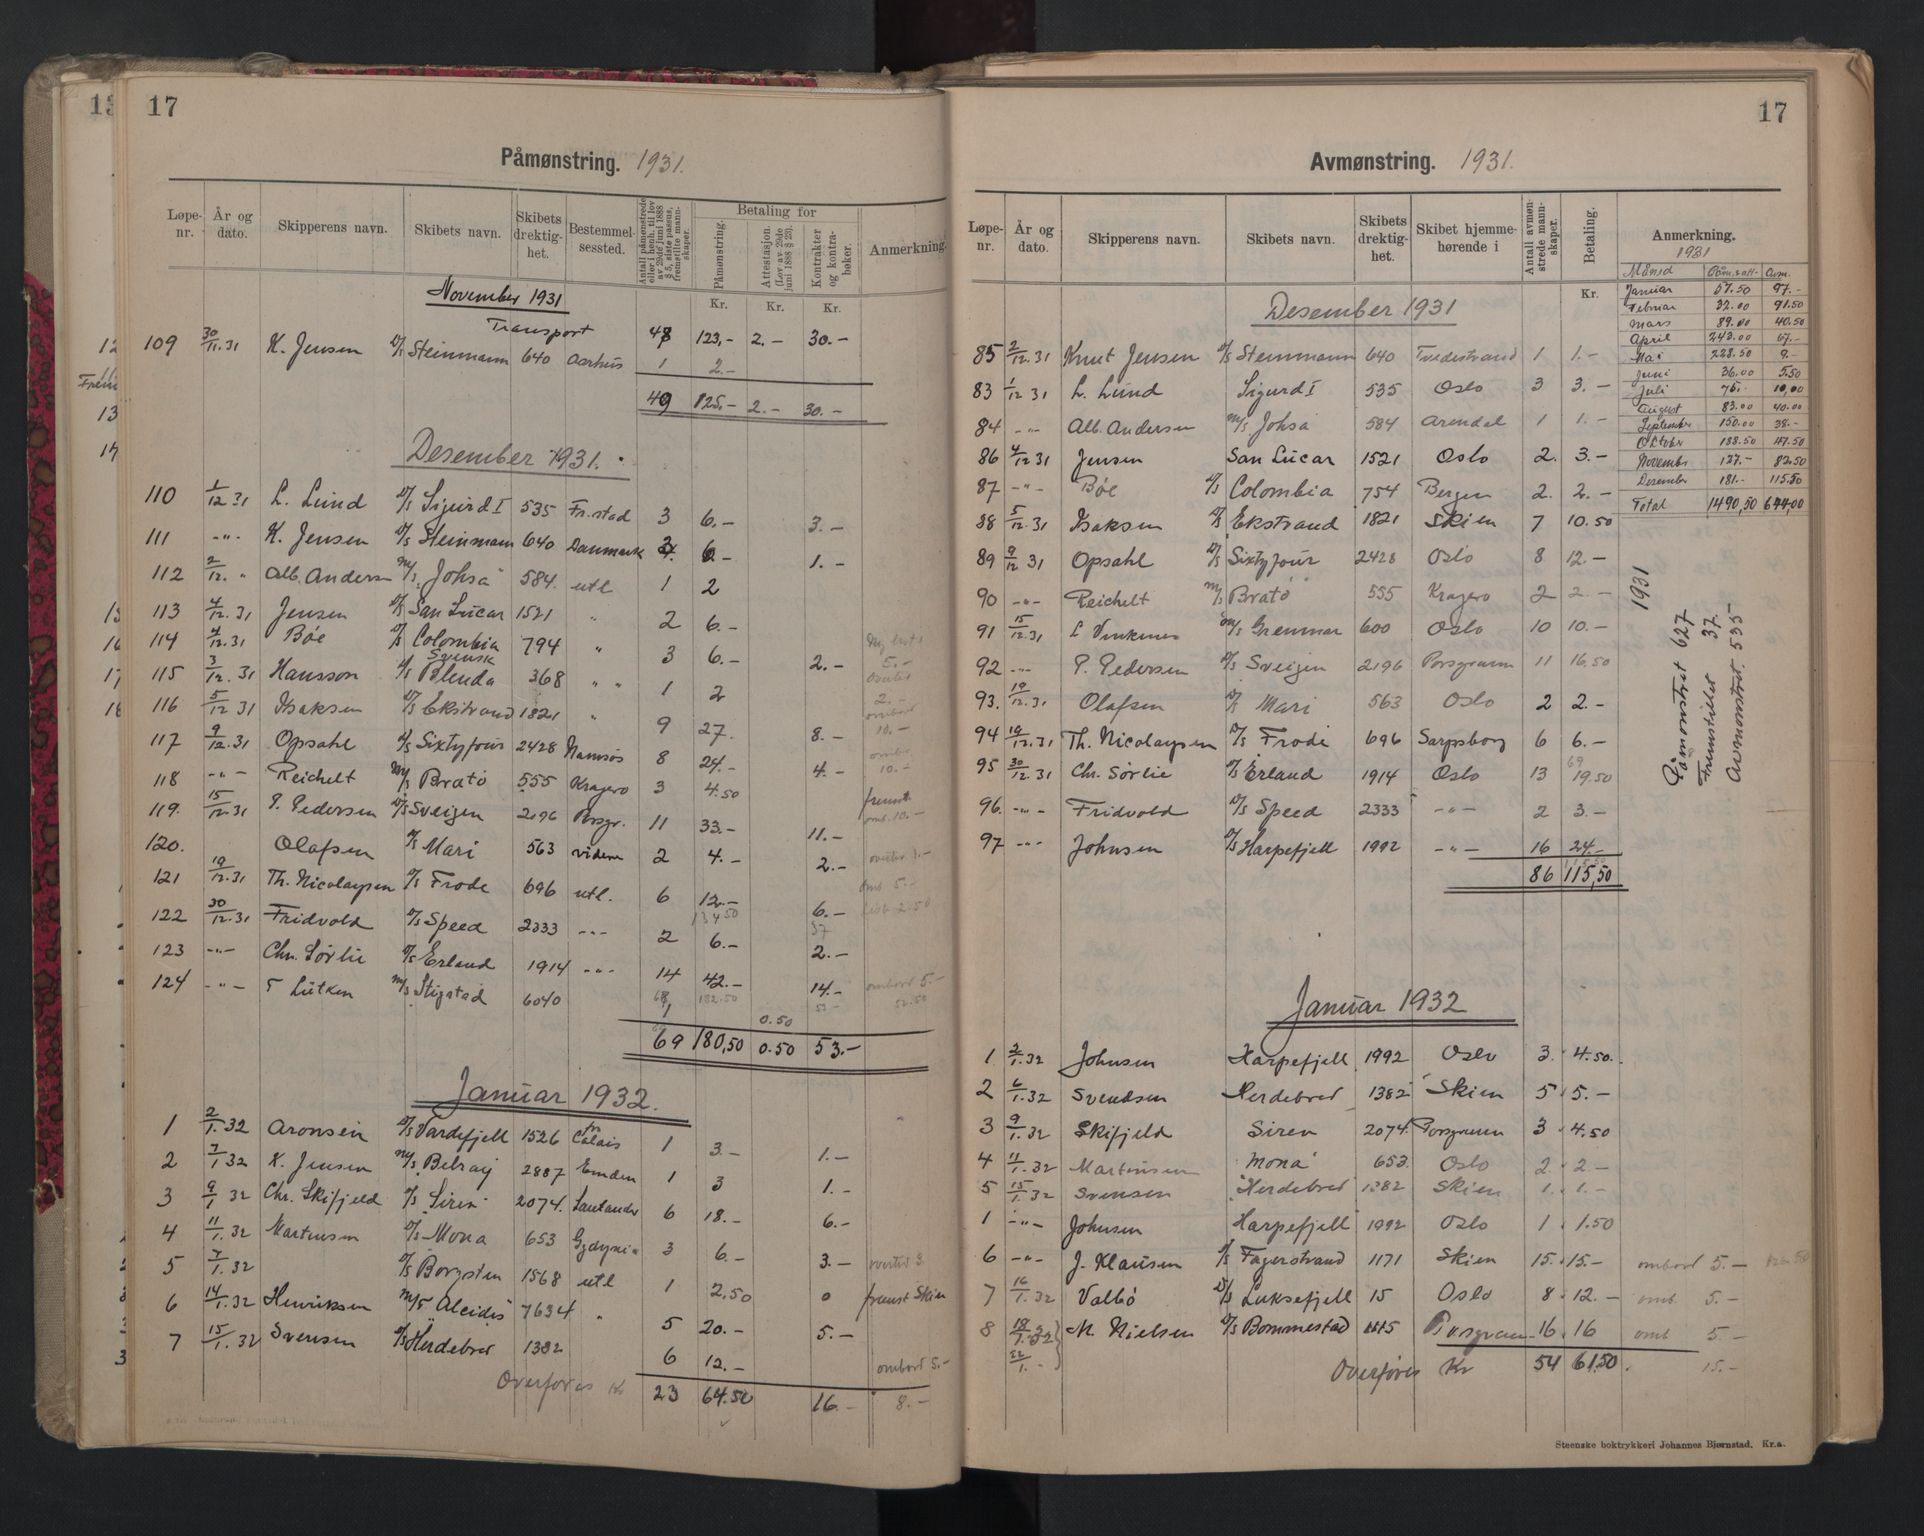 17
Påmønstring. 1931.
Løpe-nr. År og dato. Skipperens navn. Skibets navn. Skibets drektig-het. Bestemmel-sessted. Antall påmønstrede eller i henh. til lov av 29de juni 1888 § 5, siste passus, fremstilte mann-skaper. Betaling for Påmønstring. Attestasjon. (Lov av 29de juni 1888 § 23). Kontrakter og kontra-bøker. Anmerkning
Kr. Kr. Kr.
November 1931
Transport 48 123,- 2.- 30.-
109 30/11.31 K. Jensen D/S Steinmann 640 Aarhus 1 2.-
49 125.- 2.- 30.-
Desember 1931.
110 1/12 31 L. Lund D/S Sigurd I 535 Fr.stad 3 6.- 3.-
111 -"- K. Jensen D/S Steinmann 640 Danmark 6.- 1.-
112 2/12. " Alb. Andersen M/S Johsa 584. utl 1 2
113 4/12.31 Jensen D/S San Lucar 1521 " 2 6.-
114 4/12.31 Bøe D/S Colombia 794 " 3 6.- 2.-
115 3/12.31 Hansson Svensk Blenda 368 " " 1 2 5.-
116 5/12 31 Isaksen D/S Ekstrand 1821 " 9 27. 8.- ombord 10.-
117 9/12.31 Opsahl D/S Sixtyfour 2428 Namsos 8 24.- 4.- 10.-
118 -"- Reichelt M/S Bratö 555 Kragerø 3 4.50
119. 15/12.31 P. Pedersen D/S Sveigen 2196 Porsgr. 11 33.- 11.- omb. 10.-
120. Olafsen D/S Mari 563 videre 2 4.- 2.-
121 19/12.31 Th. Nicolaysen D/S Frode 696 utl. 6 12.- 6.- omb 5.-
122 30/12.31 Fridvold D/S Speed 2333 -"- 2 6.- 2.-
123 -"- Chr. Sørlie D/S Erland 1914 -"- 14 42.- 14.- ombord 5.-
124 -"- Lütken M/S Stigstad 6040 1
0.50
69 180,50 0.50 53.-
Januar 1932.
1 2/1.32 Aronsen D/S Vardefjell 1526 fr Calais 1 3.- 1.-
2 7/1 32 K. Jensen M/S Belray 2887 Emden 1 3 1.-
3 9/1 32 Chr. Skifjeld D/S Siren 2074. Santander 6 18.- 6.-
4 11/1.32 Martinsen D/S Mona 653 Gydynia 3 6.- 3.- overtid 3
5 7/1.32 D/S Borgsten 1568 utl 1 2.50 0 fremst Skien
6 14/1.32 Henriksen M/S Alcides 7634 " 5 20.- 5.-
7 15/1.32 Svensen D/S Herdebred 1382 6 12.- ombord 5.-
Overføres Kr 23 64.50 16.- 8.-
17
Avmønstring. 1931.
Løpe-nr. År og dato. Skipperens navn. Skibets navn. Skibets drektig-het. Skibet hjemme-hørende i Antall avmøn-strede mann-skaper. Betaling. Anmerkning.
Kr.
Desember 1931
85 2/12.31 Knut Jensen D/S Steinmann 640 Tvedestrand 1 1.-
83 1/12 31 L. Lund Sigurd I 535 Oslo 3 3.-
84 -"- Alb. Andersen M/S Johsa 584 Arendal 1 1.-
86 4/12 31 Jensen San Lucar 1521 Oslo 2. 3.-
87 -"- Bøe D/S Colombia 754 Bergen 2. 2.-
88 5/12.31 Isaksen D/S Ekstrand 1821 Skien 7 10.50
89 9/12 31 Opsahl D/S Sixtyfour 2428 Oslo 8 12.-
90 -"- Reichelt M/S Bratö 555 Kragerø 2 2.-
91 15/12.31 L Vinkenes M/S Grenmar 600 Oslo 10 10.-
92 -"- P. Pedersen D/S Sveigen 2196 Porsgrunn 11 16.50
93. 19/12.31 Olafsen D/S Mari 563 Oslo 2 2.-
94 19/12.31 Th. Nicolaysen D/S Frode 696 Sarpsborg 6 6.-
95 30/12.31 Chr. Sørlie D/S Erland 1914 Oslo 13 19.50
96. -"- Fridvold D/S Speed 2333 -"- 2 3.-
97 -"- Johnsen D/S Harpefjell 1992 -"- 16 24.-
86 115,50
1931
Måned Avm.
Januar 57.50 97.-
Februar 32.00 91.50
Mars 89.00 40.50
April 243.00 67.-
Mai 228.50 9.-
Juni 36.00 5.50
Juli 75.- 10,00
August 83.00 40.00
September 150.00 38.-
Oktober 188.50 47.50
November 127.- 82.50
Desember 181.- 115.50
Total 1490,50 644,00
1931
Påmønstret 627
Fremstillet 37.
Avmønstret. 535
Januar 1932
1 2/1.32 Johnsen Harpefjell 1992 Oslo 3. 4.50.
2 6/1.32 Svendsen Herdebred 1382 Skien 5 5.-
3 9/1.32 Skifjeld Siren 2074. Porsgrunn 3 4.50
4 11/1.32 Martinsen Mona 653 Oslo 2 2.-
5 15/1.32 Svensen Herdebred 1382 Skien 1. 1.-
1 -"- Johnsen Harpefjell 1992 Oslo 1 1.50
6 -"- J. Klausen D/S Fagerstrand 1171 Skien 15. 15.- ombord 5.-
7 16/1.32 Valbö D/S Luksefjell 15 Oslo 8 12.- omb. 5.-
8 18/1.32 22/1.- M. Nielsen D/S Bommestad Porsgrunn 16 16 omb 5.-
Overføres Kr 54 61.50. 15.-
Steenske boktrykkeri Johannes Bjørnstad. Kr.a.